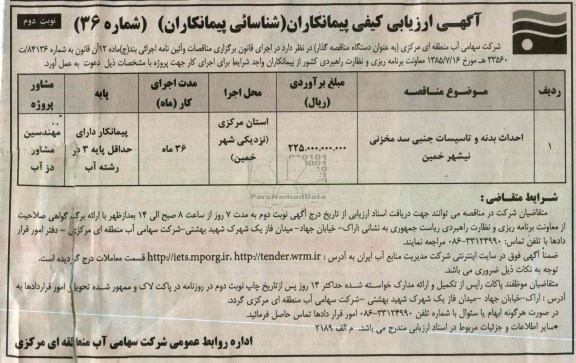 نوبت دوم
آگهی ارزیابی کیفی پیمانکاران(شناسائی پیمانکاران) (شماره ۳۶)
شرکت سهامی آب منطقه ای مرکزی (به عنوان دستگاه مناقصه گذار) در نظر دارد در اجرای قانون برگزاری مناقصات وآئین نامه اجرائی بند(ج)ماده ۱۲آن قانون به شماره ۸۴۱۳۶/ت
۳۳۵۶۰ هـ مورخ ۱۳۸۵/۷/۱۶ معاونت برنامه ریزی و نظارت راهبردی کشور از پیمانکاران واجد شرایط برای اجرای کار جهت پروژه با مشخصات ذیل دعوت به عمل آورد.
ردیف
موضوع مناقصه
مبلغ برآوردی (ریال)
محل اجرا
مدت اجرای کار (ماه)
پایه
مشاور پروژه
۱
احداث بدنه و تاسیسات جنبی سد مخزنی نیشهر خمین
۲۲۵.۰۰۰.۰۰۰.۰۰۰
استان مرکزی (نزدیکی شهر خمین)
۳۶ ماه
پیمانکار دارای حداقل پایه ۳ در رشته آب
مهندسین مشاور دز آب
ParsNamadData
شرایط متقاضی :
متقاضیان شرکت در مناقصه می توانند جهت دریافت اسناد ارزیابی از تاریخ درج آگهی نوبت دوم به مدت ۷ روز از ساعت ۸ صبح الی ۱۴ بعدازظهر با ارائه برگ گواهی صلاحیت
از معاونت برنامه ریزی و نظارت راهبردی ریاست جمهوری به نشانی :اراک- خیابان جهاد- میدان فاز یک شهرک شهید بهشتی-شرکت سهامی آب منطقه ای مرکزی - دفتر امور قرار
دادها با تلفن تماس: ۳۳۱۲۴۹۹۰-۰۸۶ مراجعه نمایند.
ضمناً آگهی فوق در سایت اینترنتی شرکت مدیریت منابع آب ایران به آدرس : http://iets.mporg.ir. http://tender.wrm.ir قسمت معاملات درج گردیده است.
توجه به نکات ذیل ضروری می باشد.
متقاضیان موظفند پاکات راپس از تکمیل و ارائه مدارک خواسته شده حداکثر ۱۴ روز پس ازتاریخ چاپ نوبت دوم در روزنامه در پاکت لاک و ممهور شده تحویل امور قراردادها به
آدرس : اراک-خیابان جهاد -میدان فاز یک شهرک شهید بهشتی -شرکت سهامی آب منطقه ای مرکزی گردد.
در صورت هرگونه ابهام یا سئوال با شماره تلفن ۳۳۱۲۴۹۹۰-۰۸۶ امور قرار دادها تماس حاصل فرمائید.
•سایر اطلاعات و جزئیات مربوط در اسناد ارزیابی مندرج می باشد. م الف ۲۱۸۹
اداره روابط عمومی شرکت سهامی آب منطقه ای مرکزی